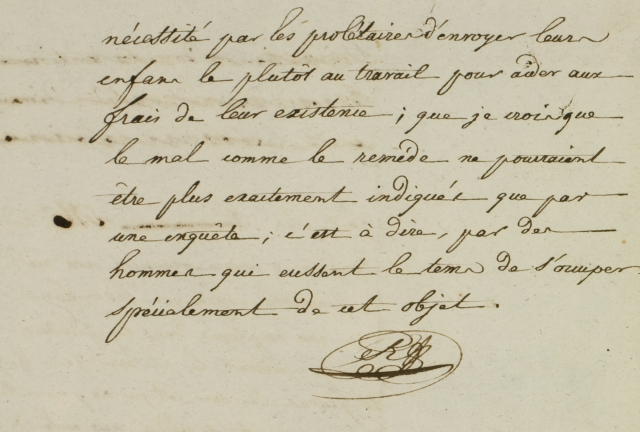 nécessité par les prolétaires d'envoyer leurs
enfans le plutôt au travail pour aider aux
frais de leur existence ; que je crois que
le mal comme le remède ne pourraient
être plus exactement indiqués que par
une enquête ; c'est à dire, par des
hommes qui eussent le tems de s'occuper
spécialement de cet objet.